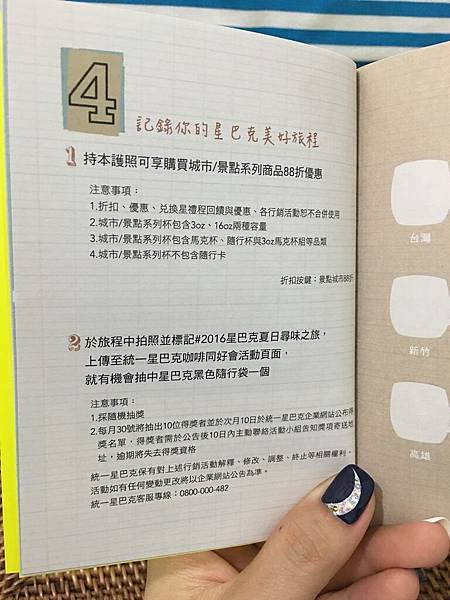 4
記錄你的星巴克美好旅程
1 持本護照可享購買城市/景點系列商品88折優惠
注意事項：
1.折扣、優惠、兌換星禮程回饋與優惠、各行銷活動恕不合併使用
2.城市/景點系列杯包含3oz、16oz兩種容量
3.城市/景點系列杯包含馬克杯、隨行杯與3oz馬克杯組等品類
4.城市/景點系列杯不包含隨行卡
折扣按鍵：景點城市88折
2 於旅程中拍照並標記#2016星巴克夏日尋味之旅，
上傳至統一星巴克咖啡同好會活動頁面，
就有機會抽中星巴克黑色隨行袋一個
注意事項：
1.採隨機抽獎
2.每月30號將抽出10位得獎者並於次月10日於統一星巴克企業網站公布得
獎名單，得獎者需於公告後10日內主動聯絡活動小組告知獎項寄送地
址，逾期將失去得獎資格
統一星巴克保有對上述行銷活動解釋、修改、調整、終止等相關權利，
活動如有任何變更改將以企業網站公告為準。
統一星巴克客服專線：0800-000-482
台灣
新竹
高雄